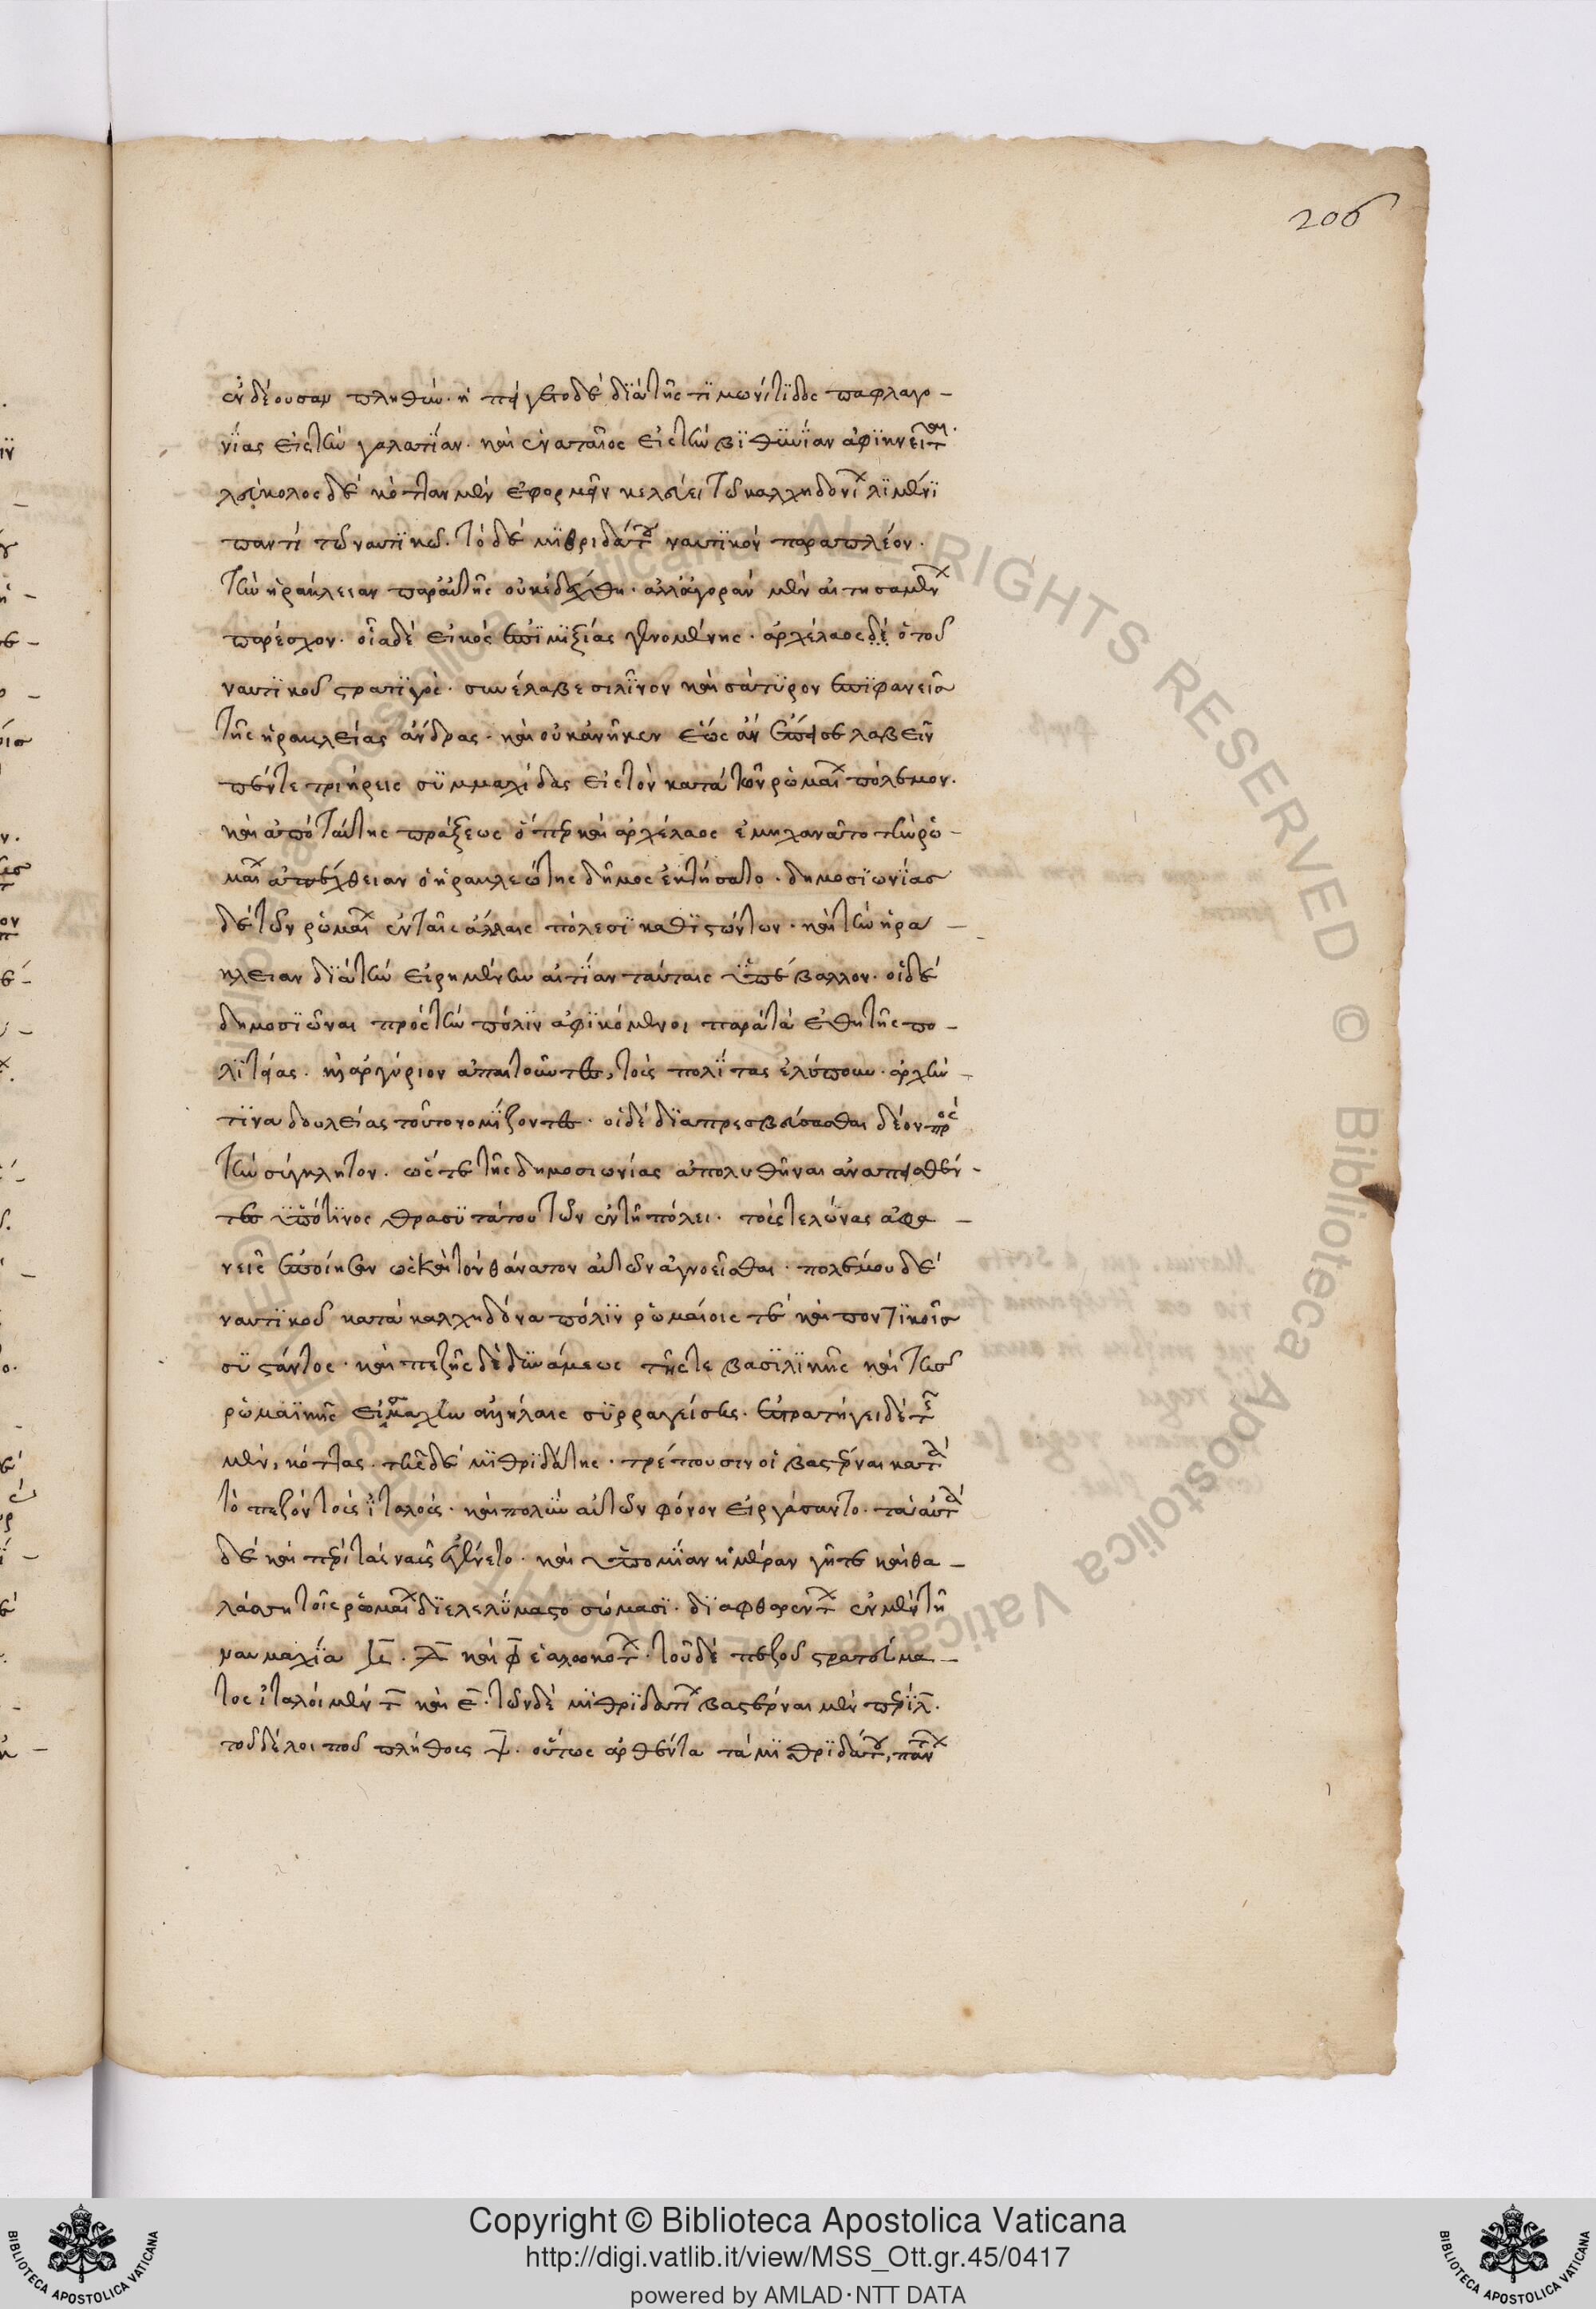 206
ἐνδέουσαν πληθὺν. ἡ πείρετο δὲ διὰ τῆς τιμωνίτιδος παφλαγο-
νίας εἰς τὴν γαλατίαν. καὶ ἐναταῖος εἰς τὴν βιθυνίαν ἀφικνεῖται.
λεύκολος δὲ κότταν μὲν ἐφορμεῖν κελεύει τῶ καλχηδονίων λιμένι
παντὶ τῶ ναυτικῶ. τὸ δὲ μιθριδάτου ναυτικὸν παραπλέον.
τὴν ἡράκλειαν παρ' αὐτῆς οὐκ ἐδέχθη. ἀλλ' ἀγορὰν μὲν αἰτησαμένων
παρέσχον. οἷα δὲ εἰκὸς ἐπιμιξίας γενομένης. ἀρχέλαος δὲ ὁ τοῦ
ναυτικοῦ στρατηγὸς. συνέλαβε σιλῖνον καὶ σάτυρον ἐπιφανεῖς
τῆς ἡρακλείας ἄνδρας. καὶ οὐκ ἀνῆκεν ἕως ἂν ἔπεισε λαβεῖν
πέντε τριήρεις συμμαχίδας εἰς τὸν κατὰ τῶν ῥωμαίων πόλεμον.
καὶ ἀπὸ ταύτης πράξεως ὅπερ καὶ ἀρχέλαος ἐμηχανᾶτο τὴν ῥω-
μαίων ἀπέχθειαν ὁ ἡρακλεώτης δῆμος ἐκτήσατο. δημοσιωνίας
δὲ τῶν ῥωμαίων ἐν ταῖς ἄλλαις πόλεσι καθιστώντων. καὶ τὴν ἡρά-
κλειαν διὰ τὴν εἰρημένην αἰτίαν ταύταις ὑπέβαλλον. οἱ δὲ
δημοσιῶναι πρὸς τὴν πόλιν ἀφικόμενοι παρὰ τὰ ἔθη τῆς πο-
λιτείας. καὶ ἀργύριον ἀπαιτοῦντες, τοὺς πολίτας ἐλύπουν. ἀρχήν
τινα δουλείας τοῦτο νομίζοντες. οἱ δὲ διαπρεσβεύσασθαι δέον πρὸς
τὴν σύγκλητον. ὥστε τῆς δημοσιωνίας ἀπολυθῆναι ἀναπεισθέν-
τες ὑπό τινος θρασυτάτου τῶν ἐν τῇ πόλει. τοὺς τελώνας ἀφα-
νεῖς ἐποίησαν ὡς καὶ τὸν θάνατον αὐτῶν ἀγνοεῖσθαι. πολέμου δὲ
ναυτικοῦ κατὰ καλχηδόνα πόλιν ῥωμαίοις τὲ καὶ ποντικοῖς
συστάντος. καὶ πεζῆς δὲ δυνάμεως τῆς τε βασιλικῆς καὶ τῆς
ῥωμαϊκῆς εἰς μάχην ἀλλήλαις συρραγείσης. ἐστρατήγει δὲ τῆς
μὲν, κόττας. τῆς δὲ μιθριδάτης. τρέπουσιν οἱ βαστέρναι κατὰ
τὸ πεζὸν τοὺς ἰταλούς. καὶ πολὺν αὐτῶν φόνον εἰργάσαντο. τὰ αὐτὰ
δὲ καὶ περὶ τὰς ναῦς ἐγένετο. καὶ ὑπὸ μίαν ἡμέραν γῆ τε καὶ θά-
λασσα τοῖς ῥωμαίων διελελύμαστο σώμασι. διαφθαρέντων ἐν μὲν τῇ
ναυμαχία μ̅. λ̅ καὶ φ̅ ἑαλωκότων. τοῦ δὲ πεζοῦ στρατεύμα-
τος ἰταλοὶ μὲν τ̅ καὶ ε̅. τῶν δὲ μιθριδατείων βαστέρναι μὲν περὶ λ̅.
τοῦ δὲ λοιποῦ πλήθους ψ̅. οὕτως ἀρθέντα τὰ μιθριδάτου, πάντων
Copyright © Biblioteca Apostolica Vaticana
http://digi.vatlib.it/view/MSS_Ott.gr.45/0417
powered by AMLAD·NTT DATA